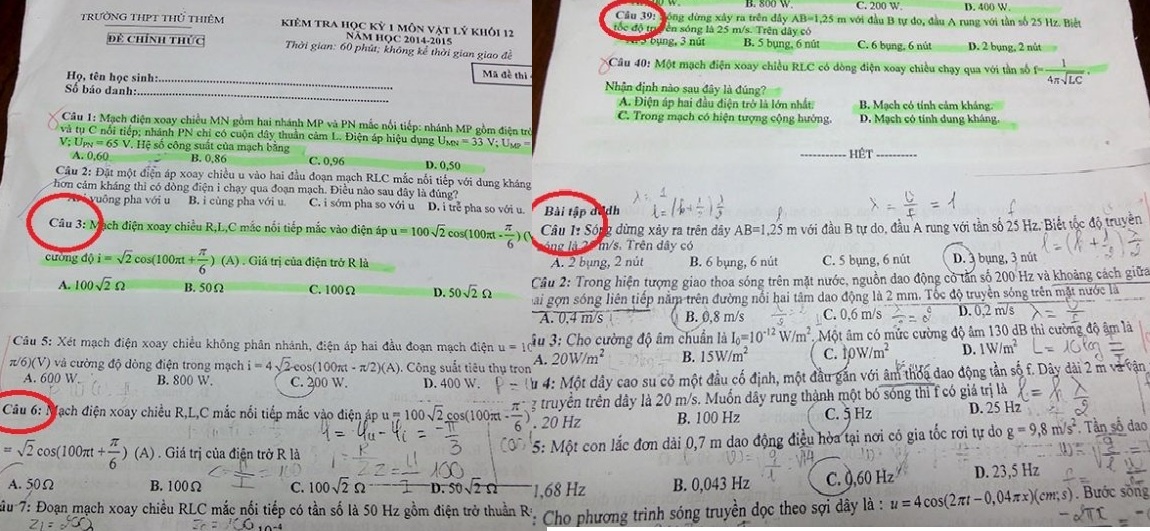 TRƯỜNG THPT THỦ THIÊM
ĐỀ CHÍNH THỨC
KIỂM TRA HỌC KỲ 1 MÔN VẬT LÝ KHỐI 12
NĂM HỌC 2014-2015
Thời gian: 60 phút; không kể thời gian giao đề
Mã đề thi
Họ, tên học sinh:
Số báo danh:
Câu 1: Mạch điện xoay chiều MN gồm hai nhánh MP và PN mắc nối tiếp: nhánh MP gồm điện trở
và tụ C nối tiếp; nhánh PN chỉ có cuộn dây thuần cảm L. Điện áp hiệu dụng U_MN = 33 V; U_MP =
V; U_PN = 65 V. Hệ số công suất của mạch bằng
A. 0,60 B. 0,86 C. 0,96 D. 0,50
Câu 2: Đặt một điện áp xoay chiều u vào hai đầu đoạn mạch RLC mắc nối tiếp với dung kháng
hơn cảm kháng thì có dòng điện i chạy qua đoạn mạch. Điều nào sau đây là đúng?
vuông pha với u B. i cùng pha với u. C. i sớm pha so với u D. i trễ pha so với u.
Câu 3: Mạch điện xoay chiều R,L,C mắc nối tiếp mắc vào điện áp u = 100√2 cos(100πt - π/6) (
cường độ i = √2 cos(100πt + π/6) (A). Giá trị của điện trở R là
A. 100√2 Ω B. 50Ω C. 100Ω D. 50√2 Ω
Câu 5: Xét mạch điện xoay chiều không phân nhánh, điện áp hai đầu đoạn mạch điện u = 10
π/6)(V) và cường độ dòng điện trong mạch i = 4√2cos(100πt - π/2)(A). Công suất tiêu thụ tron
A. 600 W. B. 800 W. C. 200 W. D. 400 W.
Câu 6: Mạch điện xoay chiều R,L,C mắc nối tiếp mắc vào điện áp u = 100√2 cos(100πt - π/6)
= √2 cos(100πt + π/6) (A). Giá trị của điện trở R là
A. 50Ω B. 100Ω C. 100√2 Ω D. 50√2 Ω
7: Đoạn mạch xoay chiều RLC mắc nối tiếp có tần số là 50 Hz gồm điện trở thuần R
B. 800 W. C. 200 W. D. 400 W.
Câu 39: Sóng dừng xảy ra trên dây AB=1,25 m với đầu B tự do, đầu A rung với tần số 25 Hz. Biết
tốc độ truyền sóng là 25 m/s. Trên dây có
bụng, 3 nút B. 5 bụng, 6 nút C. 6 bụng, 6 nút D. 2 bụng, 2 nút
Câu 40: Một mạch điện xoay chiều RLC có dòng điện xoay chiều chạy qua với tần số f = 1/(4π√LC).
Nhận định nào sau đây là đúng?
A. Điện áp hai đầu điện trở là lớn nhất. B. Mạch có tính cảm kháng.
C. Trong mạch có hiện tượng cộng hưởng. D. Mạch có tính dung kháng.
HẾT
Bài tập
Câu 1: Sóng dừng xảy ra trên dây AB=1,25 m với đầu B tự do, đầu A rung với tần số 25 Hz. Biết tốc độ truyền
sóng là 25 m/s. Trên dây có
A. 2 bụng, 2 nút B. 6 bụng, 6 nút C. 5 bụng, 6 nút D. 3 bụng, 3 nút
Câu 2: Trong hiện tượng giao thoa sóng trên mặt nước, nguồn dao động có tần số 200 Hz và khoảng cách giữa
hai gợn sóng liên tiếp nằm trên đường nối hai tâm dao động là 2 mm. Tốc độ truyền sóng trên mặt nước là
A. 0,4 m/s B. 0,8 m/s C. 0,6 m/s D. 0,2 m/s
3: Cho cường độ âm chuẩn là I₀=10⁻¹² W/m². Một âm có mức cường độ âm 130 dB thì cường độ âm là
A. 20W/m² B. 15W/m² C. 10W/m² D. 1W/m²
4: Một dây cao su có một đầu cố định, một đầu gắn với âm thoa dao động tần số f. Dây dài 2 m và vận
truyền trên dây là 20 m/s. Muốn dây rung thành một bó sóng thì f có giá trị là
20 Hz B. 100 Hz C. 5 Hz D. 25 Hz
5: Một con lắc đơn dài 0,7 m dao động điều hòa tại nơi có gia tốc rơi tự do g = 9,8 m/s². Tần số dao
1,68 Hz B. 0,043 Hz C. 0,60 Hz D. 23,5 Hz
: Cho phương trình sóng truyền dọc theo sợi dây là : u = 4cos(2πt - 0,04πx)(cm;s). Bước sóng